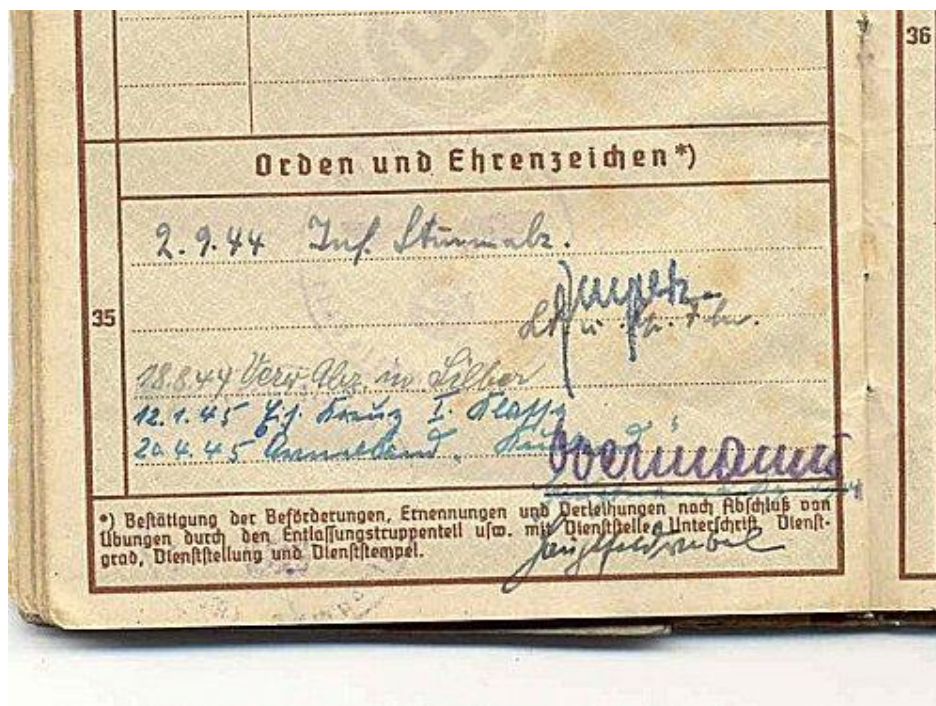 36
Orden und Ehrenzeichen*)
2.9.44 Inf. Sturmabz.
35
18.8.44 Verw. Abz. in Silber
12.1.45 E.K. Kreuz I. Klasse
20.4.45 Armelband
Obermann
*) Bestätigung der Beförderungen, Ernennungen und Verleihungen nach Abschluß von
Übungen durch den Entlassungstruppenteil usw. mit Dienststelle, Unterschrift, Dienst-
grad, Dienststellung und Dienststempel.
Hauptfeldwebel